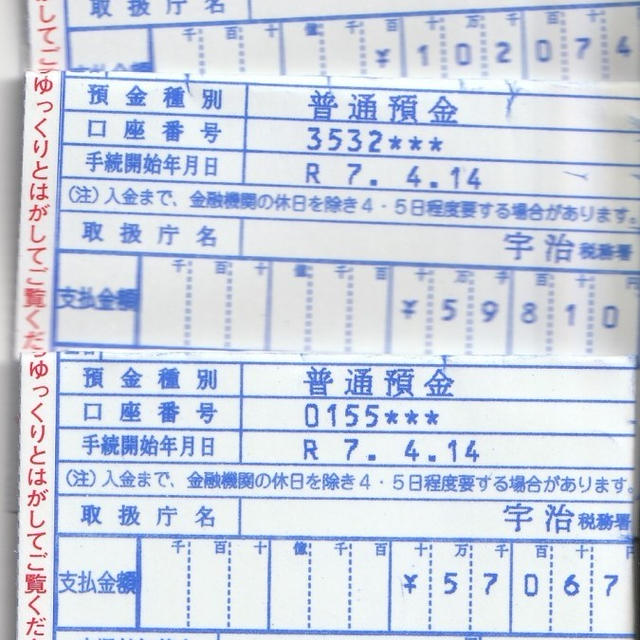 取扱庁名
千 百 十 億 千 百 十 万 千 百 十 円
支払金額 ¥102074
預金種別 普通預金
口座番号 3532***
手続開始年月日 R 7. 4.14
(注)入金まで、金融機関の休日を除き4・5日程度要する場合があります。
取扱庁名 宇治税務署
千 百 十 億 千 百 十 万 千 百 十 円
支払金額 ¥59810
預金種別 普通預金
口座番号 0155***
手続開始年月日 R 7. 4.14
(注)入金まで、金融機関の休日を除き4・5日程度要する場合があります。
取扱庁名 宇治税務署
千 百 十 億 千 百 十 万 千 百 十 円
支払金額 ¥57067
してご
ゆっくりとはがしてご覧くだ
ゆっくりとはがしてご覧くだ